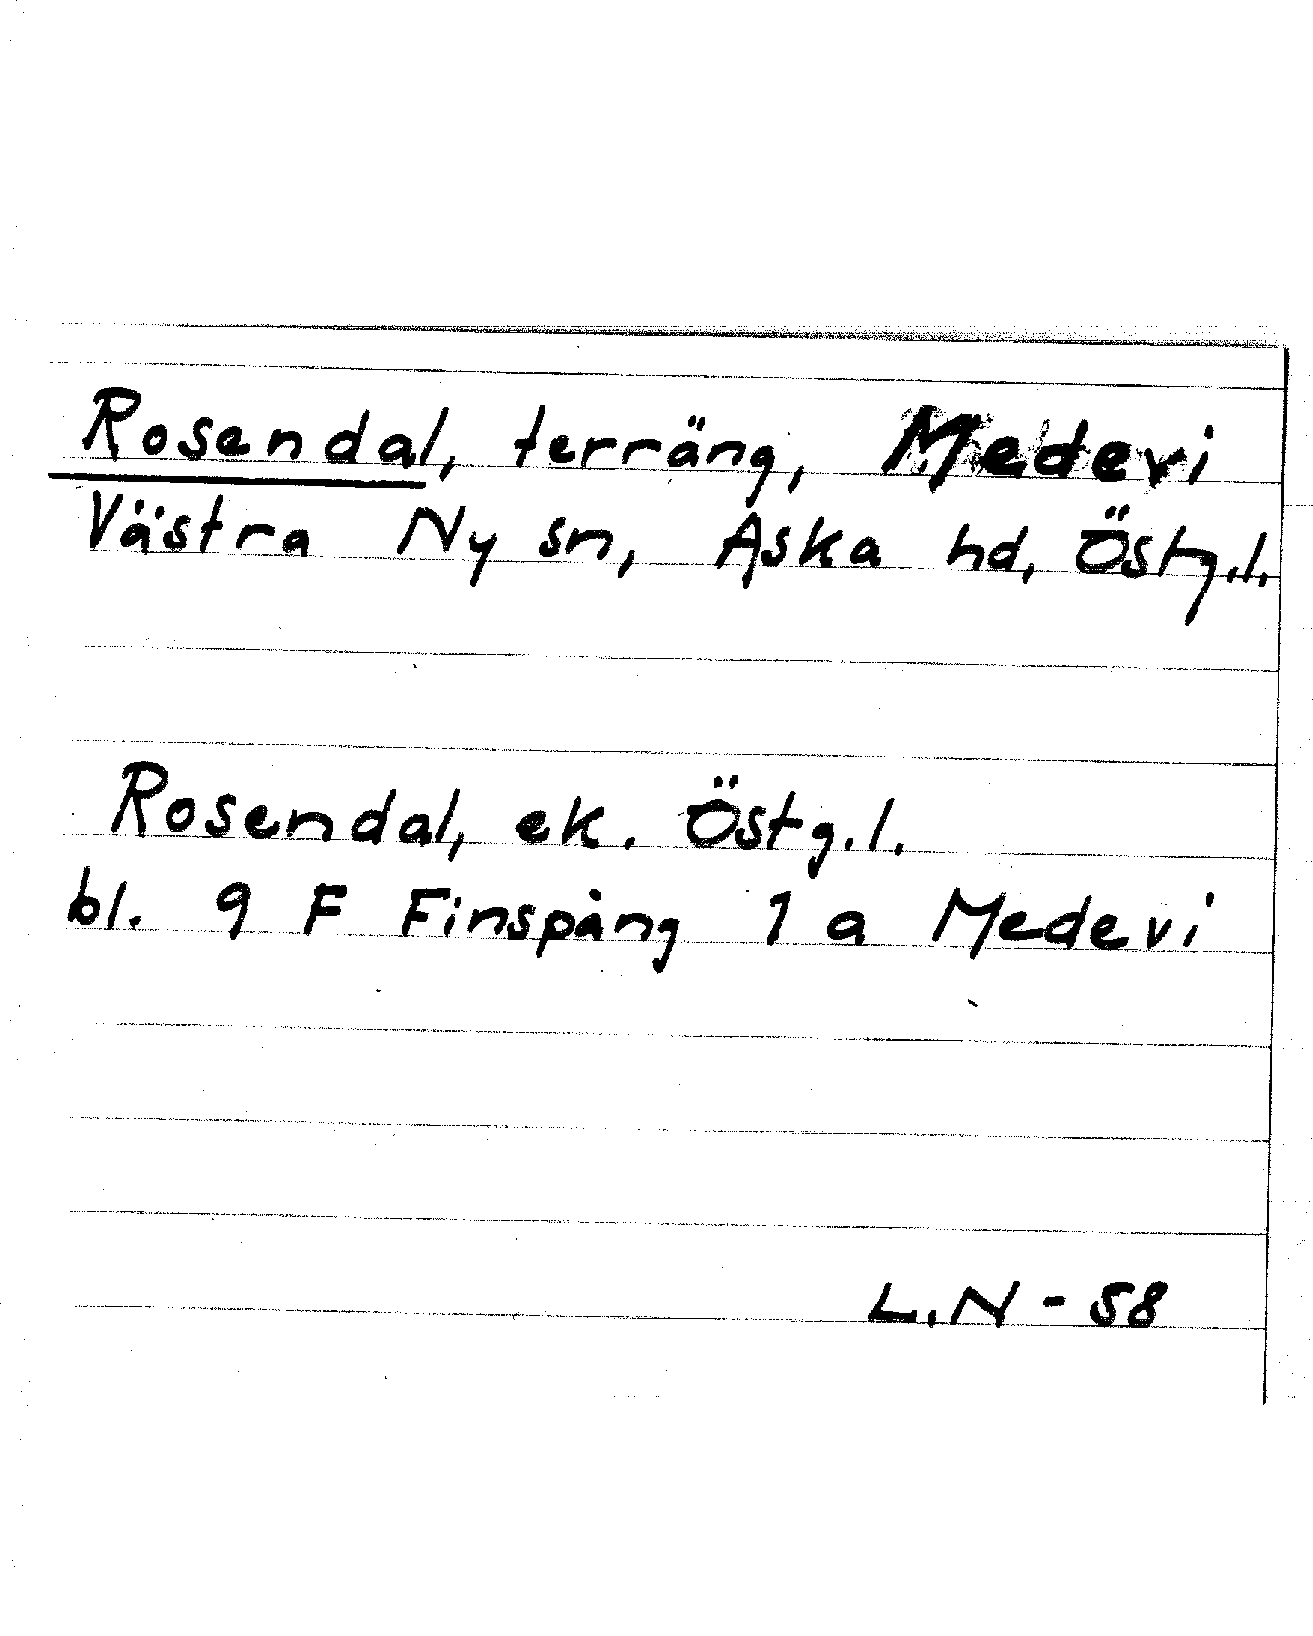 Rosendal, terräng, Medevi
Västra Ny sn, Aska hd, Östg.l.
Rosendal, ek. Östg.l.
bl. 9 F Finspång 1 a Medevi
L.N - 58